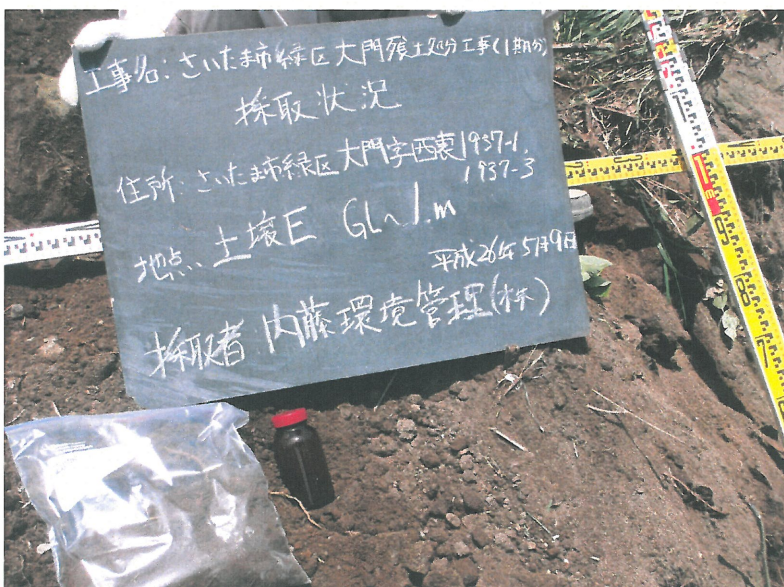 工事名：さいたま市緑区大門残土処分工事（1期分）
採取状況
住所：さいたま市緑区大門字西裏1937-1,
1937-3
地点 土壌E GL～1.m
平成26年5月9日
採取者 内藤環境管理(株)